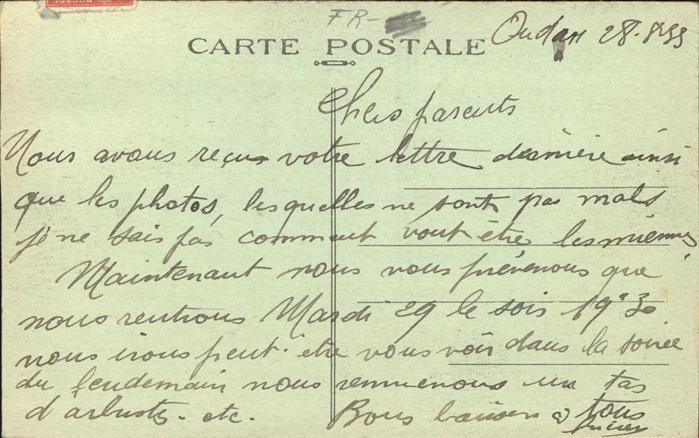 FR-
CARTE POSTALE
28-8-33
Chers parents
Nous avons reçus votre lettre dernière ainsi
que les photos, lesquelles ne sont pas mals
je ne sais pas comment vont être les miennes
Maintenant nous vous prévenons que
nous rentrons Mardi 29 le soir 19h30
nous irons peut-être vous voir dans la soirée
du lendemain nous remmenons un tas
d'arbustes. etc. Bons baisers à tous